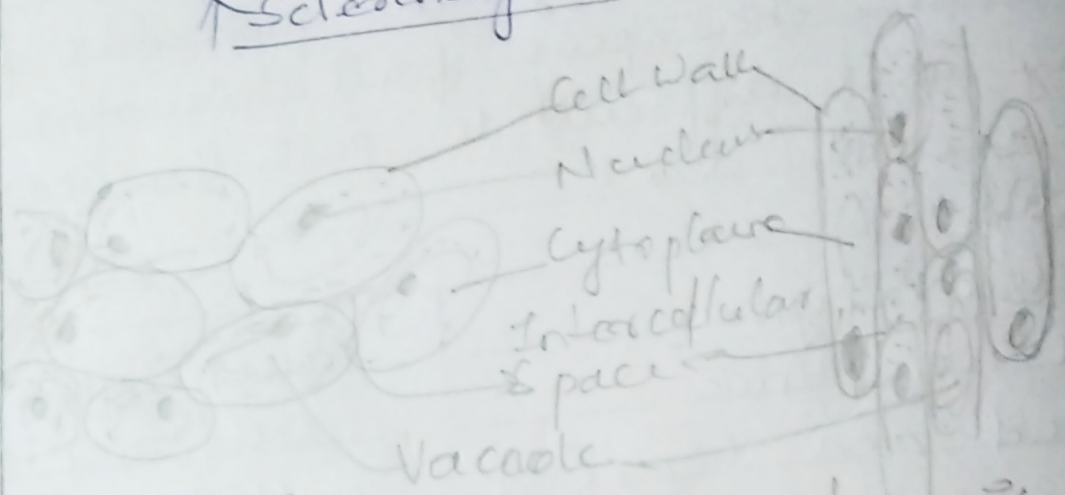 Cell Wall
Nucleus
Cytoplasm
Intercellular
Space
Vacuole